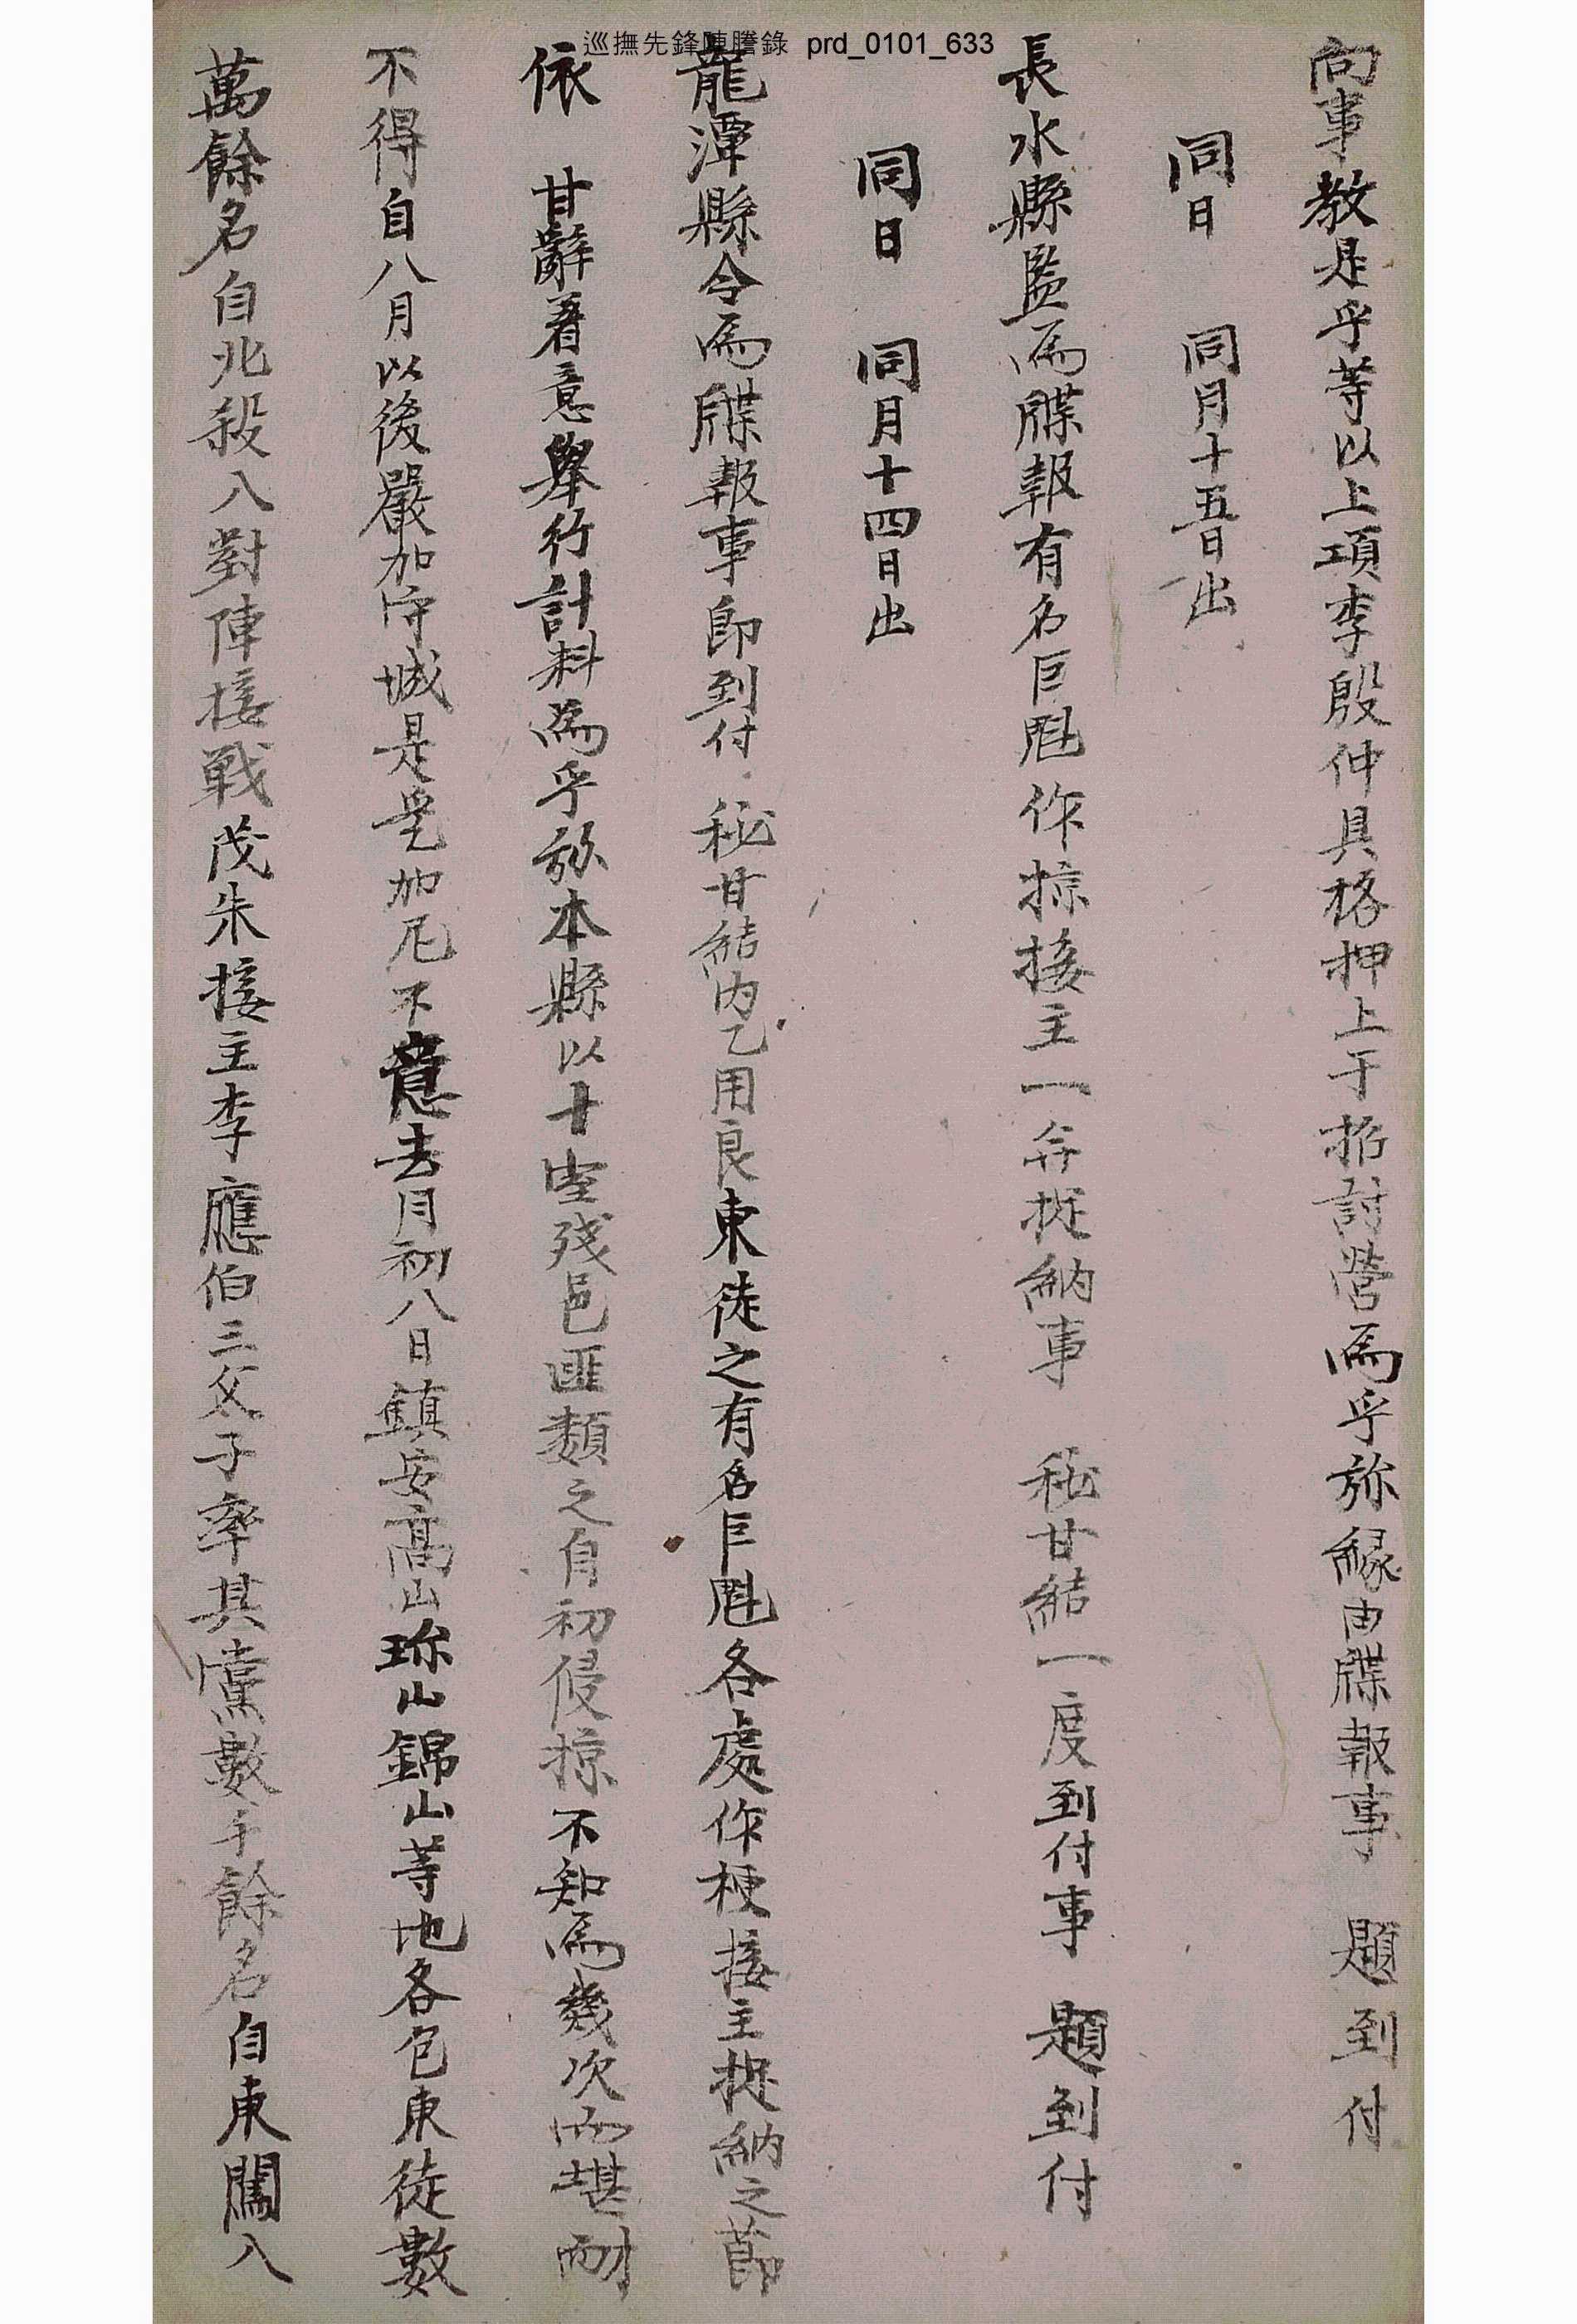 巡撫先鋒陣謄錄 prd_0101_633
向事教是乎等以上項李殷仲具格押上于招討營爲乎旀緣由牒報事 題到付
同日 同月十五日出
長水縣監爲牒報有名巨魁作掠接主一幷捉納事 秘甘結一度到付事 題到付
同日 同月十四日出
龍潭縣令爲牒報事卽到付秘甘結內乙用良東徒之有名巨魁各處作梗接主捉納之節
依 甘辭着意擧行計料爲乎旀本縣以十室殘邑匪類之自初侵掠不知爲幾次而堪耐
不得自八月以後嚴加守城是乎加尼不意去月初八日鎭安高山珎山錦山等地各包東徒數
萬餘名自北殺入對陣接戰茂朱接主李應伯三父子率其黨數千餘名自東闖入